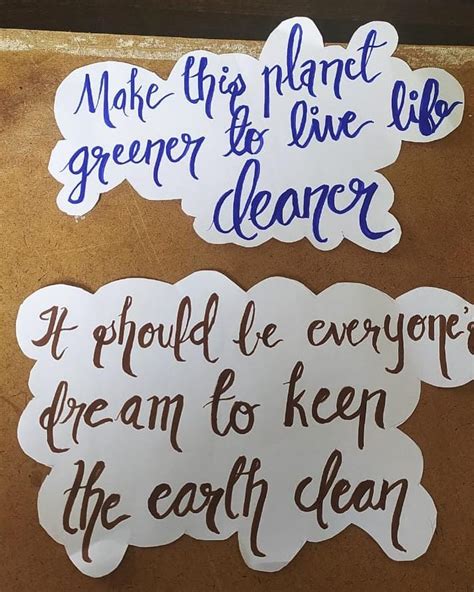 Make this planet
greener to live life
cleaner
It should be everyone's
dream to keep
the earth clean